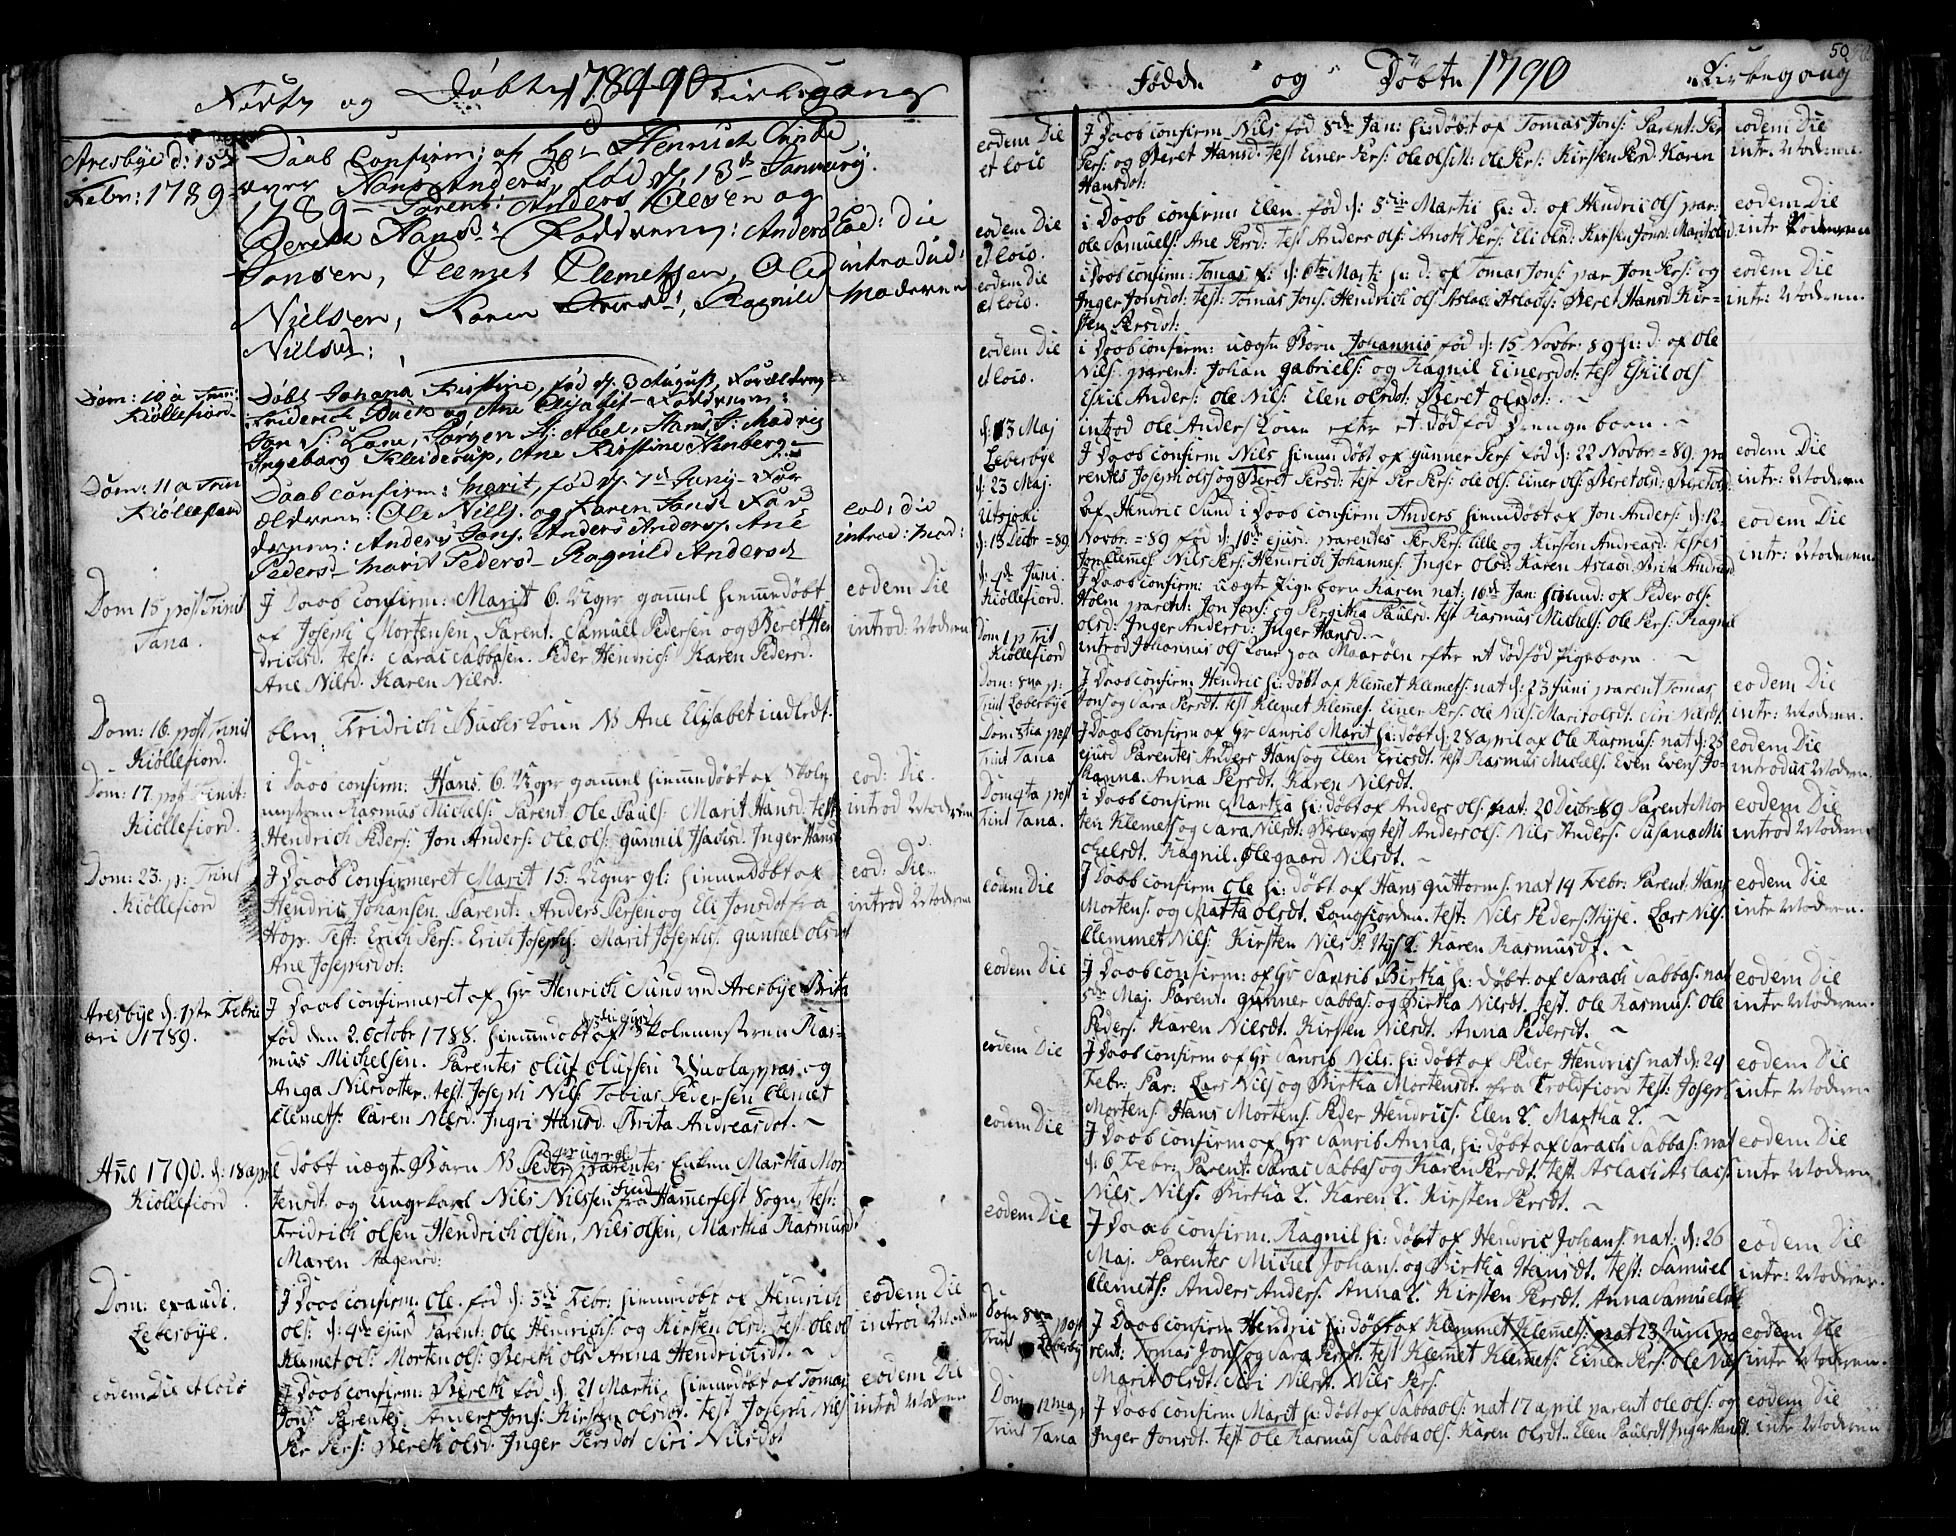 Födte og Döbte 1789-90 Kirkegang
Aresbÿe d: 15de
Febr: 1789
Daab Confirm: af Hr Henrich Sunde
over Hans Anders: fød d. 13de January
1789 - Parent: Anders Olesen og
Berethe Hansd: Fadderne: Anders
Jonsen, Clemet Clemetsen, Ole
Nielsen, Karen Persd:, Ragnild
Nielsd:
Eod: die
introdud:
Moderen
Dom: 10 a Trin:
Kiöllefiord
Döbt Johana Kirstine, fød d. 3 August, Forældrene
Friderich Buck og Ane Elisabet - Fadderne:
Ingebarg Kleiderup, Ane Kirstine
Dom: 11 a Trin
Kiöllefiord
Daab confirm: Marit, fød d. 7de Juny - For
ældrene: Ole Niels. og Karen Jansd Fad
derene: Anders Jons. Anders Anders. Ane
Pedersd - Marit Pedersd - Ragnild Andersd
eod: die
introd: Mod:
Dom 15 post Trinit
Tana.
J Daab confirm: Marit 6. Uger gammel hiemmedöbt
af Joseph Mortensen, Parent. Samuel Pedersen og Beret Hen
drichsd. test: Sarac Sabbasen. Peder Hendrics: Karen Pedersd.
Ane Nilsd. Karen Nilsd.
eodem Die
introd: Moderen
Dom: 16. post Trinit
Kiöllefiord.
blev Fridrich Buchs Kone N Ane Elisabet indledt.
Dom: 17. post Trinit:
Kiöllefiord.
i Daab confirm: Hans. 6. Uger gammel hiemmedöbt af Skole
mesteren Rasmus Michels: Parent Ole Pauls: Marit Hansd. test:
Hendrich Peders: Jon Anders: Ole ols: Gunnil Isacsd. Inger Hansd
eod: Die.
introd Moderen
Dom: 23. p: Trinit
Kiöllefiord
J Daab Confirmeret Marit 15. Uger gl: hiemmedöbt af
Hendric Johansen. Parent: Anders Persen og Eli Jonsdot fra
Hop. Test: Erich Pers: Erich Josephs: Marit Josephs: Gunhel olsdot
Ane Josephsdot:
eod: Die.
introd Moderen
Aresbÿe d: 1ste Febru
ari 1789.
J Daab confirmeret af Hr Henrich Sund ved Aresbÿe Brita
fød den 2. octobr 1788. hiemmedöbt af Skolemesteren Ras-
mus Michelsen. Parentes oluf olufsen Wuolappas og
Anga Nilsdotter. test Joseph Nils: Tobias Pedersen Clemet
Clemets: Caren Nilsd. Jngri Hansd. Brita Andreasdot.
Año 1790. d: 18 april
Kiöllefiord
Döbt uægte Barn N Peder Parentes Enken Martha Mor
tensdt. og Ungkarl Nils Nilssen fra Hammerfest Sogn, test:
Fridrich olsen Hendrich olsen, Nils olsen, Martha Rasmusd
Maren Aagensd:
Dom: exaudi.
Lebesbÿe.
J Daab confirm. Ole. fød d: 3de Febr: hiemmedöbt af Henrich
ols: d: 4de ejusd Parent: Ole Hendrichs: og Kirsten olsd. test Ole ols
Klemet ols: Morten ols: Bereth ols Anna Hendrichsdt.
eodem Die
introd Moderen
eodem Die et loco
J Daab confirm: Bereth fød d: 21 Martii hiemmedöbt af Tomas
Jons: Parentes Anders Jons: Kirsten olsdt. test Joseph Nils
Per Pers: Bereth olsd. Inger Persdot Siri Nilsdot
eodem Die
introd Moderen
Födde og Döbte 1790 Kirkegang
50
eodem Die
et loco
J Daab confirm Nils fød 8de Jan: hi: döbt af Tomas Jons: Parent: Per
Pers: og Beret Hansd. test Einer Pers: Ole Pers: Kirsten Persd. Karen
Hansdot:
eodem Die
intr. Moderen.
eodem Die
et loco.
i Daab confirm: Elen. fød d: 5te Martii hi: d: af Hendric ols par:
Ole Samuels: Ane Persd: test Anders ols: Eli olsd: Kirsten Jonsd: Marit olsd.
eodem Die
intr Moderen
eodem die
et loco.
i Daab confirm: Tomas f: d: 6te Marti hi: d: af Tomas Jons: par Jon Pers: og
Inger Jonsdot: test: Tomas Jons: Hendrich ols Aslac Aslacs: Beret Hansd. Kir=
sten Persdot:
eodem Die
intr: Moderen.
eodem Die
et loco.
i Daab confirm: uægte Barn Johannis fød d: 15 Novbr: 89 hi: d: af Ole
Nils: parent: Johan gabriels: og Ragnil Einersdot: test Eskil ols
Eskil Anders: Ole Nils: Elen olsdt: Beret olsdt:
d: 13 Maj
Lebesbye
introd Ole Anders Kone efter et død fød Drenge barn.
d: 23 Maj.
J Daab confirm Nils hiemmedöbt af gunner Pers fød d: 22 Novbr = 89. pa
rentes Joseph ols og Beret Persd: test Per Pers: Ole ols: Einer ols: Beret olsd: Beret olsd
eodem Die
intr: Moderen
Utsjoki
d: 13 Decbr = 89
Af Hendric Sund i Daab confirm Anders hiemmedöbt af Jon Anders: d: 12
Novbr. = 89 fød d: 10de ejusd. parentes Per Pers: lille og Kirsten Andreasd: testes
Jon Clemets: Nils Pers: Henrich Johannes: Inger olsd: Karen Aslacsd. Brita Andreasd
eodem Die
intr: Moderen.
d: 4de Juni.
Kiöllefiord.
J Daab confirm: uægte Pigebarn Karen nat: 16de Jan: af Peder ols:
Holm parent: Jon Jons: og Birgitha Paulsd: test Rasmus Michels: Ole Pers: Ragnil
olsd: Inger Andersd: Inger Hansd.
Dom 1 p Trit
Kiöllefiord
introd Johannis ols Kone paa Maasöen efter et dødfød Pigebarn.
Dom: 8va p:
Trint Lebesbye
J Daab confirm Hendric hi: döbt af Klemet Klemets: nat d: 23 Juni parent Tomas
Jons og Sara Persdt. test Klemet Klemets: Einer Pers: Ole Nils: Marit olsdt. Siri Nilsdt.
eodem Die
intr: Moderen.
Dom: 3tia post
Trint Tana
J Daab confirm af Hr Sanrib Marit hi: döbt d: 28 april af Ole Rasmus: nat d: 25
ejusd Parentes Anders Hans og Elen Ericsdt. test Rasmus Michels: Even Evens: Jo-
hanna. Anna Persdt. Karen Nilsdt.
eodem Die
introduc Moderen.
Dom 4ta post
Trint Tana.
i Daab confirm Martha hi: döbt af Anders ols: nat: 20 Decbr = 89 Parent Mor
ten Klemets og Sara Nilsdt: test Anders ols: Nils Anders: Susana Mi
chelsdt. Ragnil. Olegaard Nilsdt.
eodem Die
introd Moderen
eodem Die
J Daab confirm Ole hi: döbt af Hans guttorms: nat 14 Febr: Parent: Hans
Mortens: og Matta olsdt. Langfiorden. test: Nils Peders. Lars Nils:
Clemmet Nils: Kirsten Karen Rasmusdt.
eodem Die
intr Moderen.
eodem Die
J Daab confirm: af Hr Sanrib Birtha hi: döbt. af Sarach Sabbas: nat
5de Maj. Parent. gunner Sabbas: og Birtha Nilsdt. test. Ole Rasmus: Ole
Peders: Karen Nilsdt. Kirsten Nilsdt. Anna Pedersdt.
eodem Die
intr: Moderen.
eodem Die
J Daab confirm af Hr Sanrib Nils. hi: döbt af Peder Hendrics nat d: 24
Febr: Par: Lars Nils og Birtha Mortensdt. fra Troldfiord test: Joseph
Mortens: Hans Mortens: Peder Hendrics: Elen L. Martha L.
eodem Die
intr Moderen.
eodem Die
J Daab confirm af Hr Sanrib Anna, hi: döbt af Sarach Sabbas: nat
d: 6 Febr: Parent: Sarac Sabbas og Karen Persdt. test: Aslach Aslacs:
Nils Nils: Birtha L. Karen L. Kirsten Persdt.
eodem Die
intr Moderen.
eodem Die
J Daab confirm. Ragnil hi: döbt af Hendric Johans: nat: d: 26
Maj. Parentes Michel Johans: og Birtha Hansdt. test: Samuel
Clemets: Anders Anders: Anna L. Kirsten Persdt. Anna Samuelsdt
eodem Die
intr: Moderen.
Dom 8va post
Trint Lebesby
J Daab confirm Hendric hi: döbt af Klemmet Klemets: nat 23 Juni pa
rent: Tomas Jons og Sara Persdt. test Klemet Klemets: Einer Pers: Ole Nils
Marit olsdt. Siri Nilsdt. Nils Pers:
eodem Die
intr Moderen.
Dom 12ma p
Trint Tana
J Daab confirm Marit hi: döbt af Sabba ols: nat 17 april parent ole ols: og
Inger Jonsdt. test Ole Rasmus Sabba ols: Karen olsdt. Elen Paulsdt Inger Hansdt.
eodem Die
intr Moderen